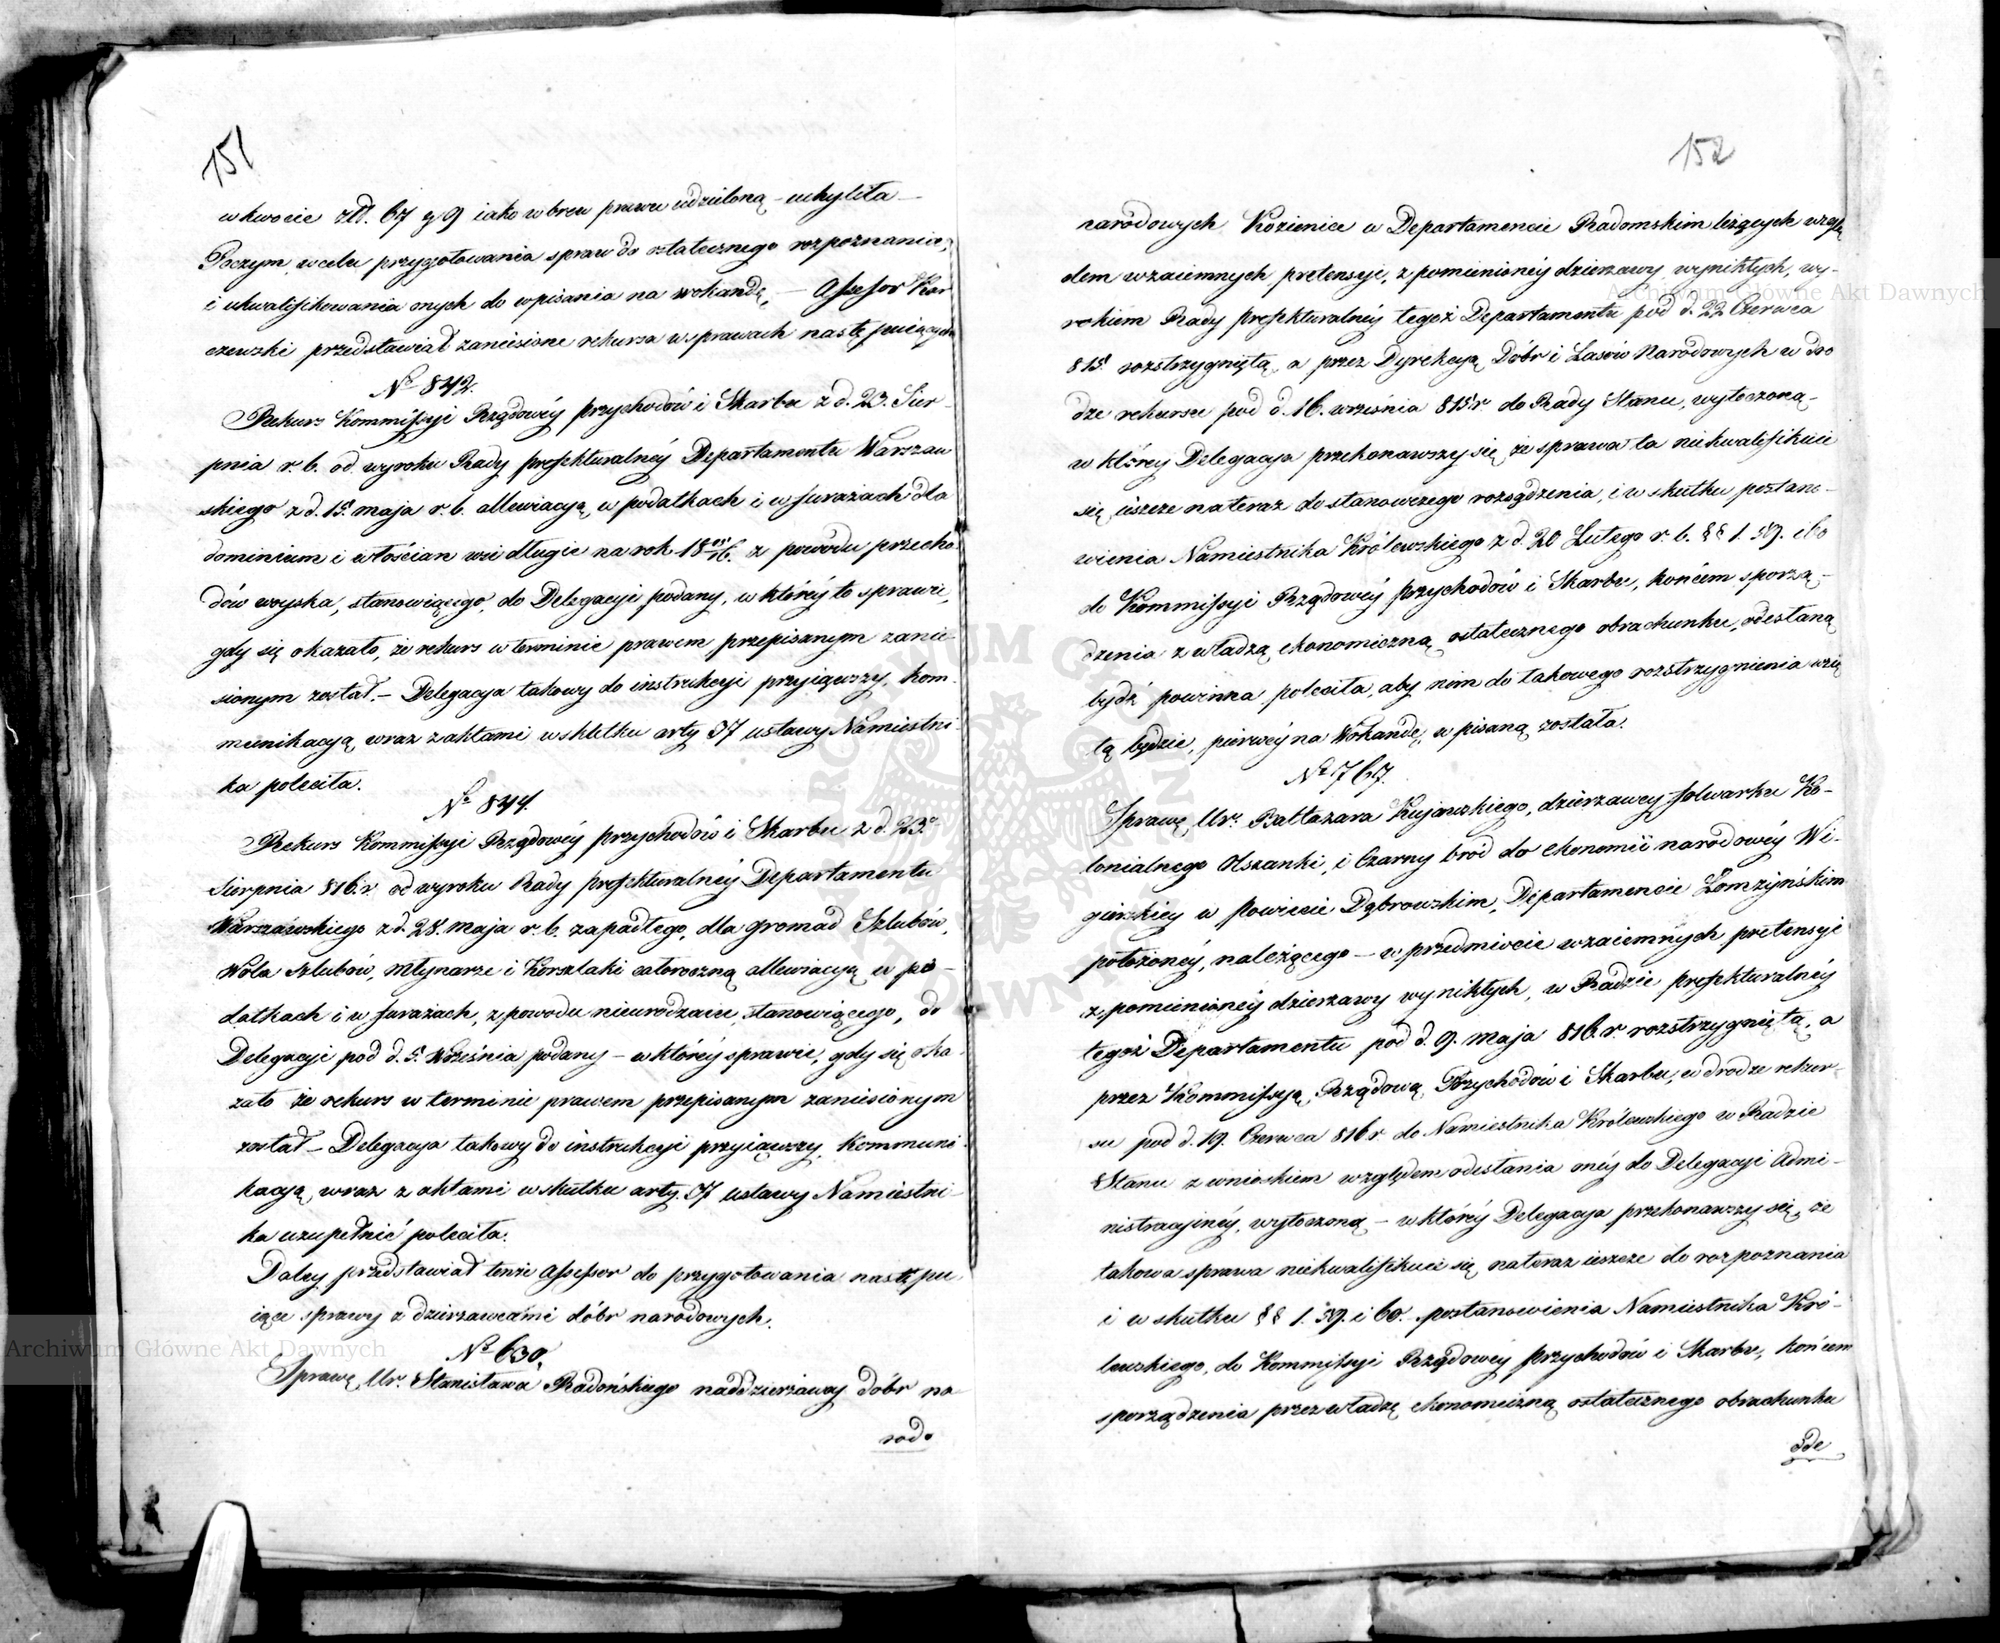 151
w kwocie złł. 67 g 9 iako wbrew prawu udzieloną – uchyliła –
Poczym, w celu przygotowania spraw do ostatecznego rozpoznania,
i ukwalifikowania onych do wpisania na wokandę, – Assessor Kar
czewski przedstawiał zaniesione rekursa w sprawach następuiących
N° 842.
Rekurs Kommissyi Rządowéy przychodów i Skarbu z d. 23. Sier-
pnia r. b. od wyroku Rady prefekturalnéy Departamentu Warszaw
skiego z d. 15. maja r. b. allewiacyą, w podatkach i w furażach dla
dominium i włościan wsi długie na rok 18 15/16. z powodu przecho
dów woyska, stanowiącego, do Delegacyi podany, w któréy to sprawie,
gdy się okazało, że rekurs w terminie prawem przepisanym zanie-
sionym został. – Delegacya takowy do instrukcyi przyiąwszy, kom-
munikacyą wraz z aktami w skutku arty 37 ustawy Namiestni-
ka poleciła.
N° 844.
Rekurs Kommissyi Rządowéy przychodów i Skarbu z d. 23°
Sierpnia 816. r. od wyroku Rady prefekturalnéy Departamentu
Warszawskiego z d. 28. maja r. b. zapadłego, dla gromad Szlubów,
Wola szlubów, Młynarze i Korszlaki całoroczną allewiacyą w po-
datkach i w furażach, z powodu nieurodzaiu, stanowiącego, do
Delegacyi pod d. 5. Września podany – w któréy sprawie, gdy się oka-
zało że rekurs w terminie prawem przepisanym zaniesionym
został – Delegacya takowy do instrukcyi przyiąwszy, Kommuni-
kacyą, wraz z aktami w skutku arty. 37 ustawy Namiestni-
ka uzupełnić poleciła.
Daléy przedstawiał tenże Assessor do przygotowania następu-
iące sprawy z dzierzawcami dóbr narodowych.
N° 630.
Sprawę Ur. Stanisława Radońskiego naddzierżawcy dóbr na-
rodo
152
narodowych Kozienice w Departamencie Radomskim leżących wzglę
dem wzaiemnych pretensyi, z pomienionéy dzierzawy wynikłych, wy-
rokiem Rady prefekturalnéy tegoż Departamentu pod d. 22 Czerwca
815. rozstrzygniętą, a przez Dyrekcyą Dóbr i Lasów Narodowych w dro
dze rekursu pod d. 16. września 815 r. do Rady Stanu, wytoczoną –
w któréy Delegacya przekonawszy się że sprawa ta niekwalifikuie
się ieszcze nateraz do stanowczego rozsądzenia, i w skutku postano-
wienia Namiestnika Królewskiego z d. 20 Lutego r. b. §§ 1. 59. i 60
do Kommissyi Rządowéy przychodów i Skarbu, końcem sporzą-
dzenia z władzą ekonomiczną ostatecznego obrachunku, odesłaną
bydź powinna, poleciła, aby nim do takowego rozstrzygnienia wzię
tą będzie, pierwéy na Wokandę, wpisaną została.
N° 767.
Sprawę, Ur. Baltazara Kujawskiego, dzierzawcy folwarku Ko-
lonialnego Olszanki, i Czarny bród do ekonomii narodowéy Wi-
gierskiey w Powiecie Dąbrowskim, Departamencie Łomzyńskim
położonéy, należącego – w przedmiocie wzaiemnych pretensyi
z pomienionéy dzierzawy wynikłych, w Radzie prefekturalnéy
tegoż Departamentu pod d. 9. maja 816. r. rozstrzygniętą, a
przez Kommissyą Rządową Przychodów i Skarbu, w drodze rekur-
su pod d. 19. Czerwca 816 r. do Namiestnika Królewskiego w Radzie
Stanu z wnioskiem względem odesłania onéy do Delegacyi Admi-
nistracyinéy, wytoczoną – w któréy Delegacya przekonawszy się, że
takowa sprawa niekwalifikuie się nateraz ieszcze do rozpoznania
i w skutku §§ 1. 59. i 60. postanowienia Namiestnika Kró-
lewskiego, do Kommissyi Rządowéy przychodów i Skarbu, końcem
sporządzenia przez władzę ekonomiczną ostatecznego obrachunku
ode
Archiwum Główne Akt Dawnych
Archiwum Główne Akt Dawnych
ARCHIWUM GŁÓWNE AKT DAWNYCH